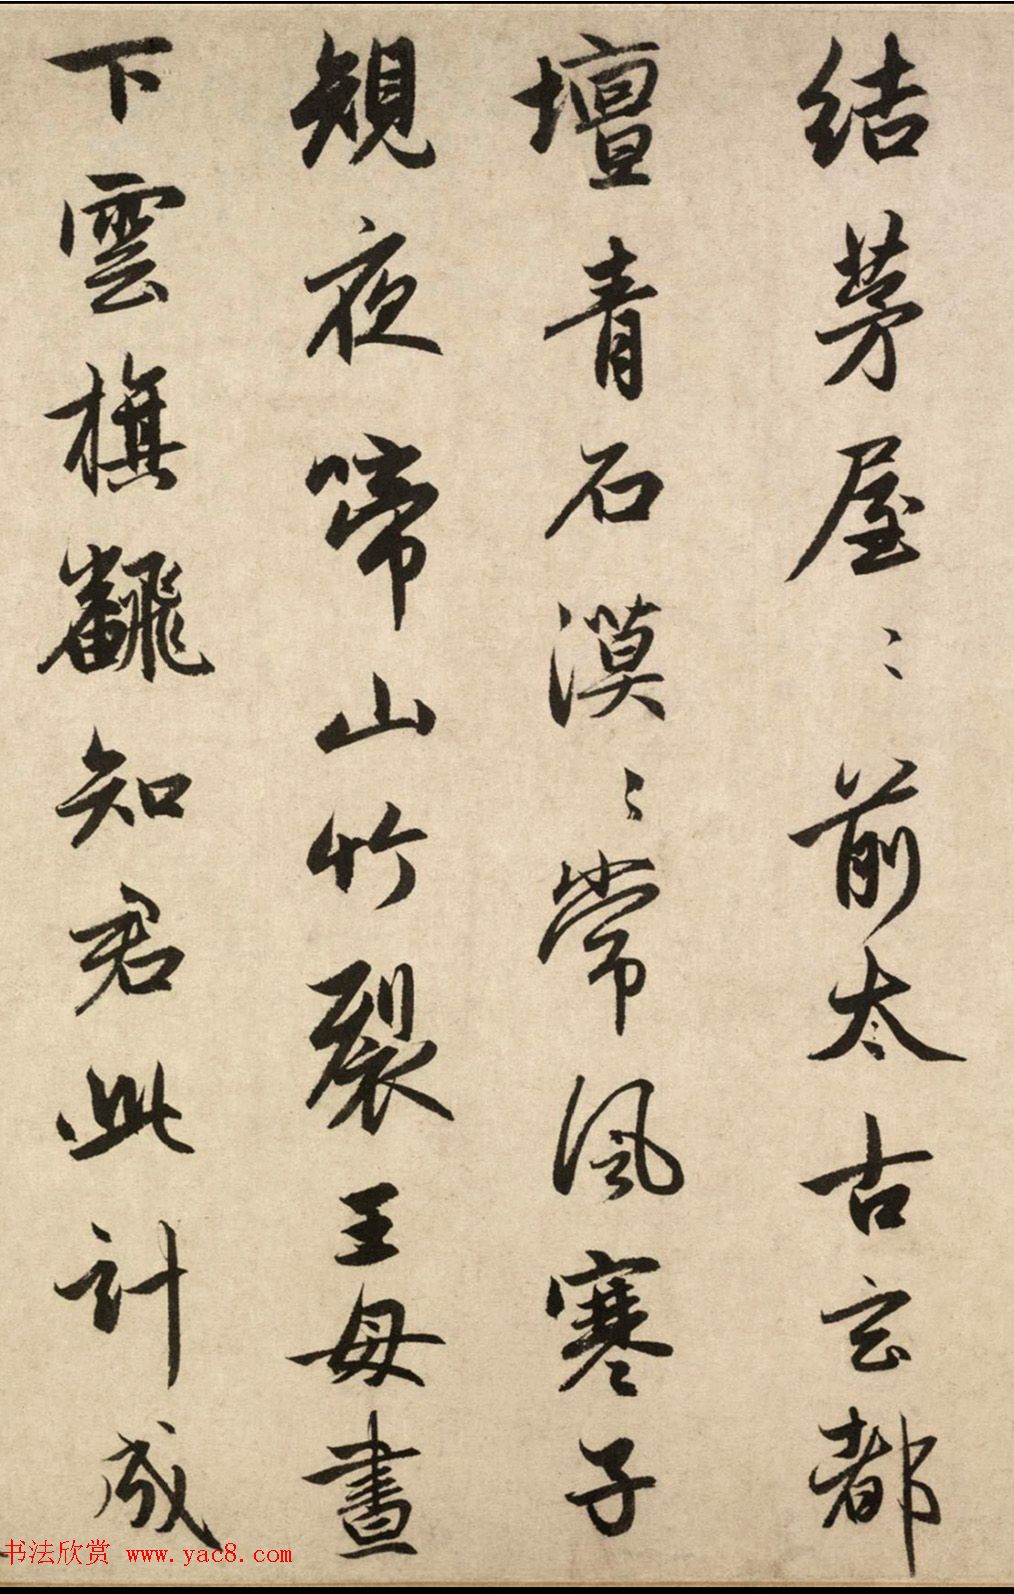 结茅屋〻前太古玄都
壇青石漠〻常風寒子
規夜啼山竹裂王母晝
下雲旗翻知君此計成
书法欣赏 www.yac8.com